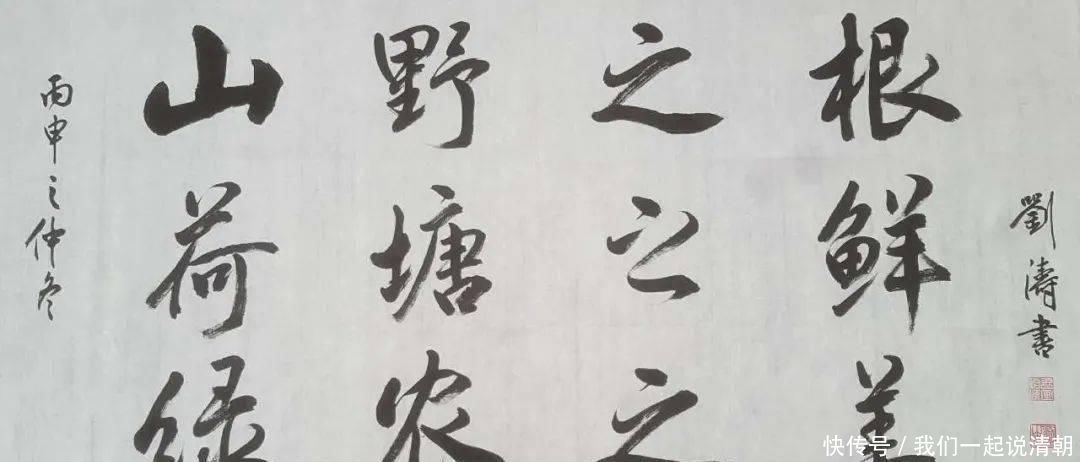 丙申之仲冬
山野之根
荷塘之鲜
绿农之美
劉濤書
快传号 / 我们一起说清朝